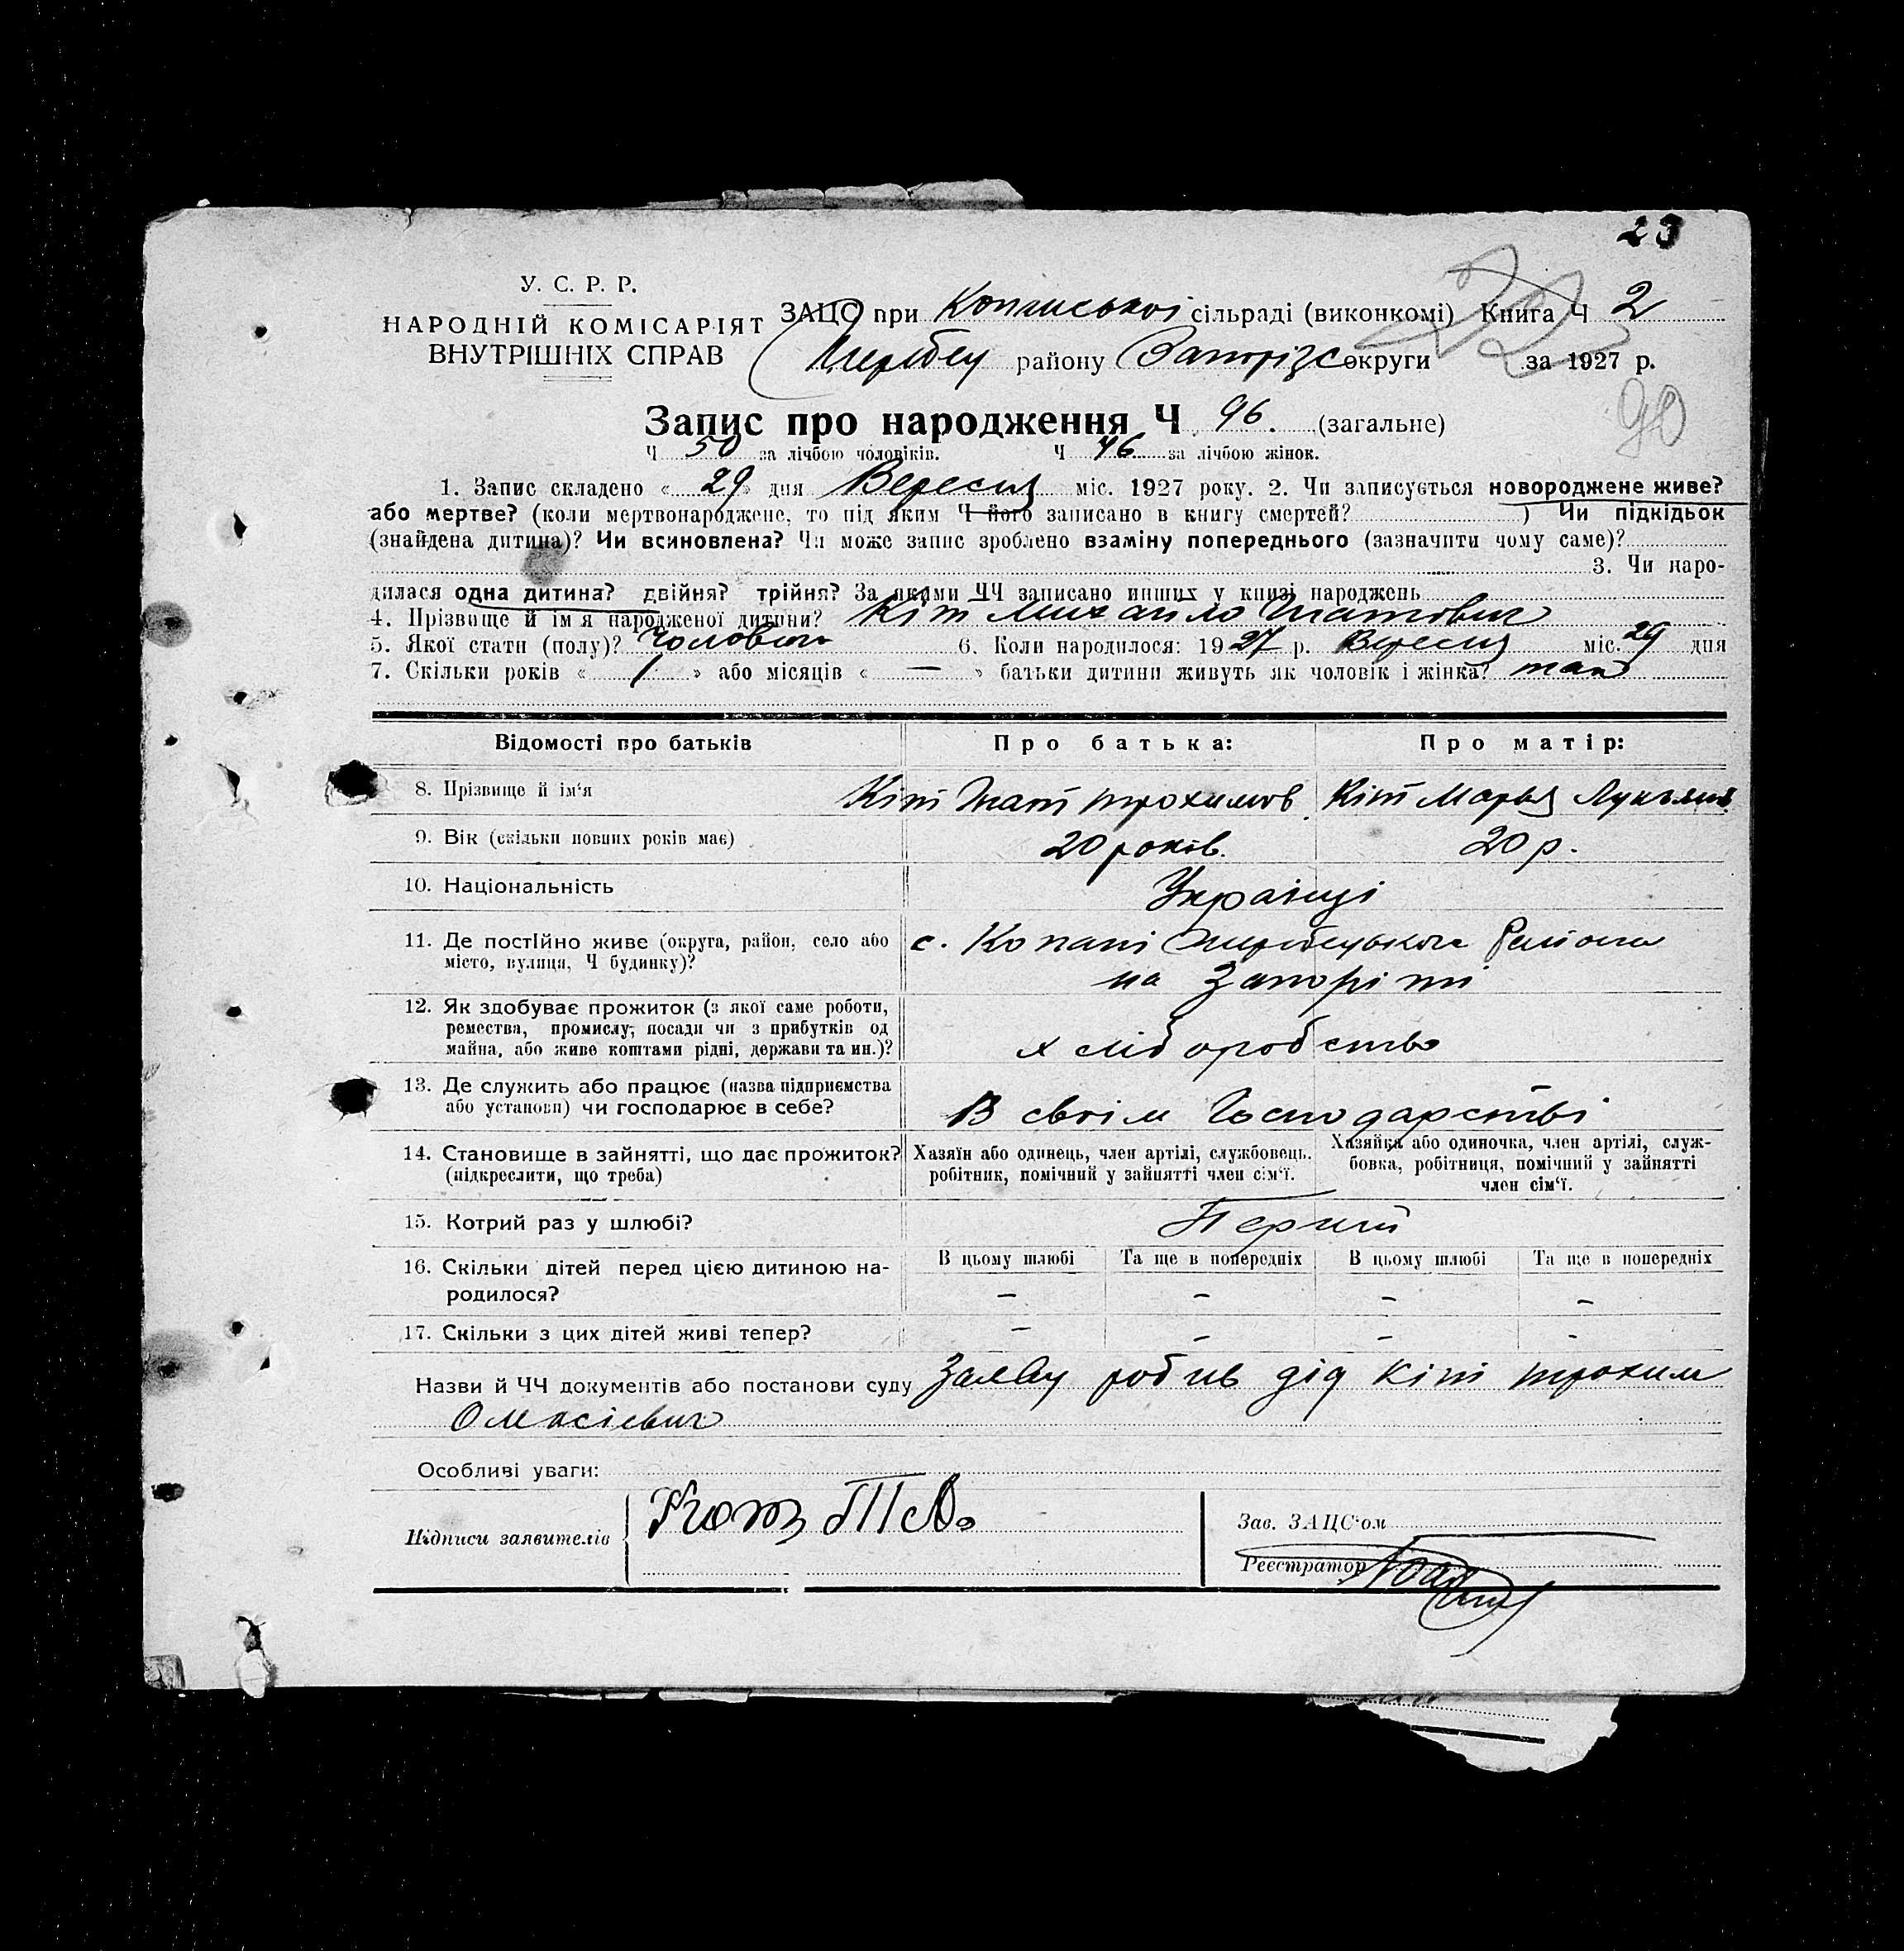 23
У. С. Р. Р.
НАРОДНІЙ КОМІСАРІЯТ
ВНУТРІШНІХ СПРАВ
ЗАЦС при сільраді (виконкомі) Книга Ч 2
району Запорізс округи за 1927 р.
90
Запис про народження Ч 96. (загальне)
Ч 50 за лічбою чоловіків. Ч 46 за лічбою жінок.
1. Запис складено « 29 » дня Вересня міс. 1927 року. 2. Чи записується новороджене живе?
або мертве? (коли мертвонароджене, то під яким Ч його записано в книгу смертей? ) Чи підкідьок
(знайдена дитина)? Чи всиновлена? Чи може запис зроблено взаміну попереднього (зазначити чому саме)?
3. Чи наро-
дилася одна дитина? двійня? трійня? За якими ЧЧ записано инших у книзі народжень
4. Прізвище й ім'я народженої дитини? Кіт Михайло Гнатович
5. Якої стати (полу)? Чоловіч 6. Коли народилося: 1927 р. Вересня міс. 29 дня
7. Скільки років « 1 » або місяців « — » батьки дитини живуть як чоловік і жінка? так
Відомості про батьків Про батька: Про матір:
8. Прізвище й ім'я Кіт Гнат Трохимов Кіт Марья Лукьянів
9. Вік (скільки повних років має) 20 років. 20 р.
10. Національність Українці
11. Де постійно живе (округа, район, село або
місто, вулиця, Ч будинку)?
с. Копані Району
на Запоріжжі
12. Як здобуває прожиток (з якої саме роботи,
ремества, промислу, посади чи з прибутків од
майна, або живе коштами рідні, держави та ин.)?
хліборобство
13. Де служить або працює (назва підприємства
або установи) чи господарює в себе?
В своім Господарстві
14. Становище в зайнятті, що дає прожиток?
(підкреслити, що треба)
Хазяїн або одинець, член артілі, службовець.
робітник, помічний у зайнятті член сім'ї.
Хазяйка або одиночка, член артілі, служ-
бовка, робітниця, помічний у зайнятті
член сім'ї.
15. Котрий раз у шлюбі? Перший
16. Скільки дітей перед цією дитиною на-
родилося?
В цьому шлюбі Та ще в попередніх В цьому шлюбі Та ще в попередніх
– – – –
17. Скільки з цих дітей живі тепер? – – – –
Назви й ЧЧ документів або постанови суду Заяву робив дід Кіт Трохим
Особливі уваги:
Підписи заявителів
Зав. ЗАЦС'ом
Реєстратор